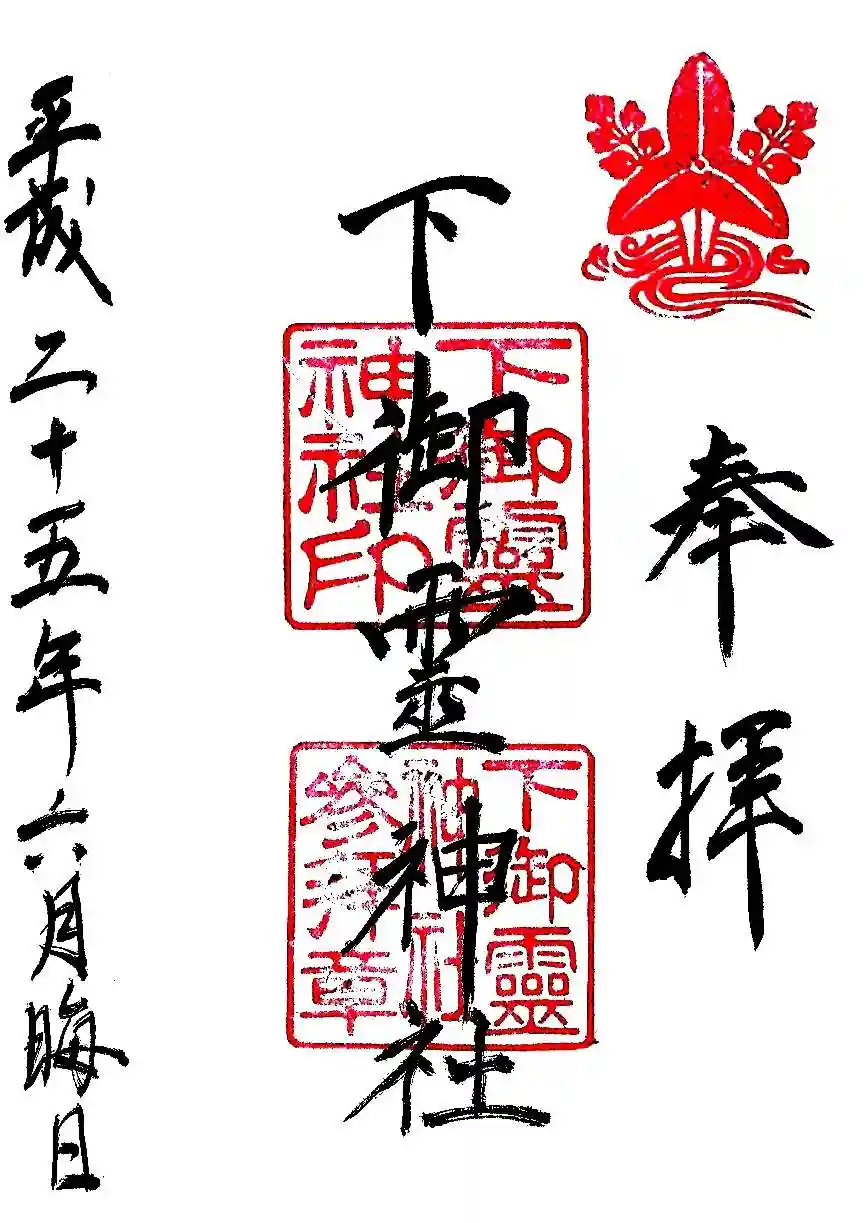 奉拝
下御霊神社
下御靈
神社印
下御靈
神社
參拜章
平成二十五年六月晦日